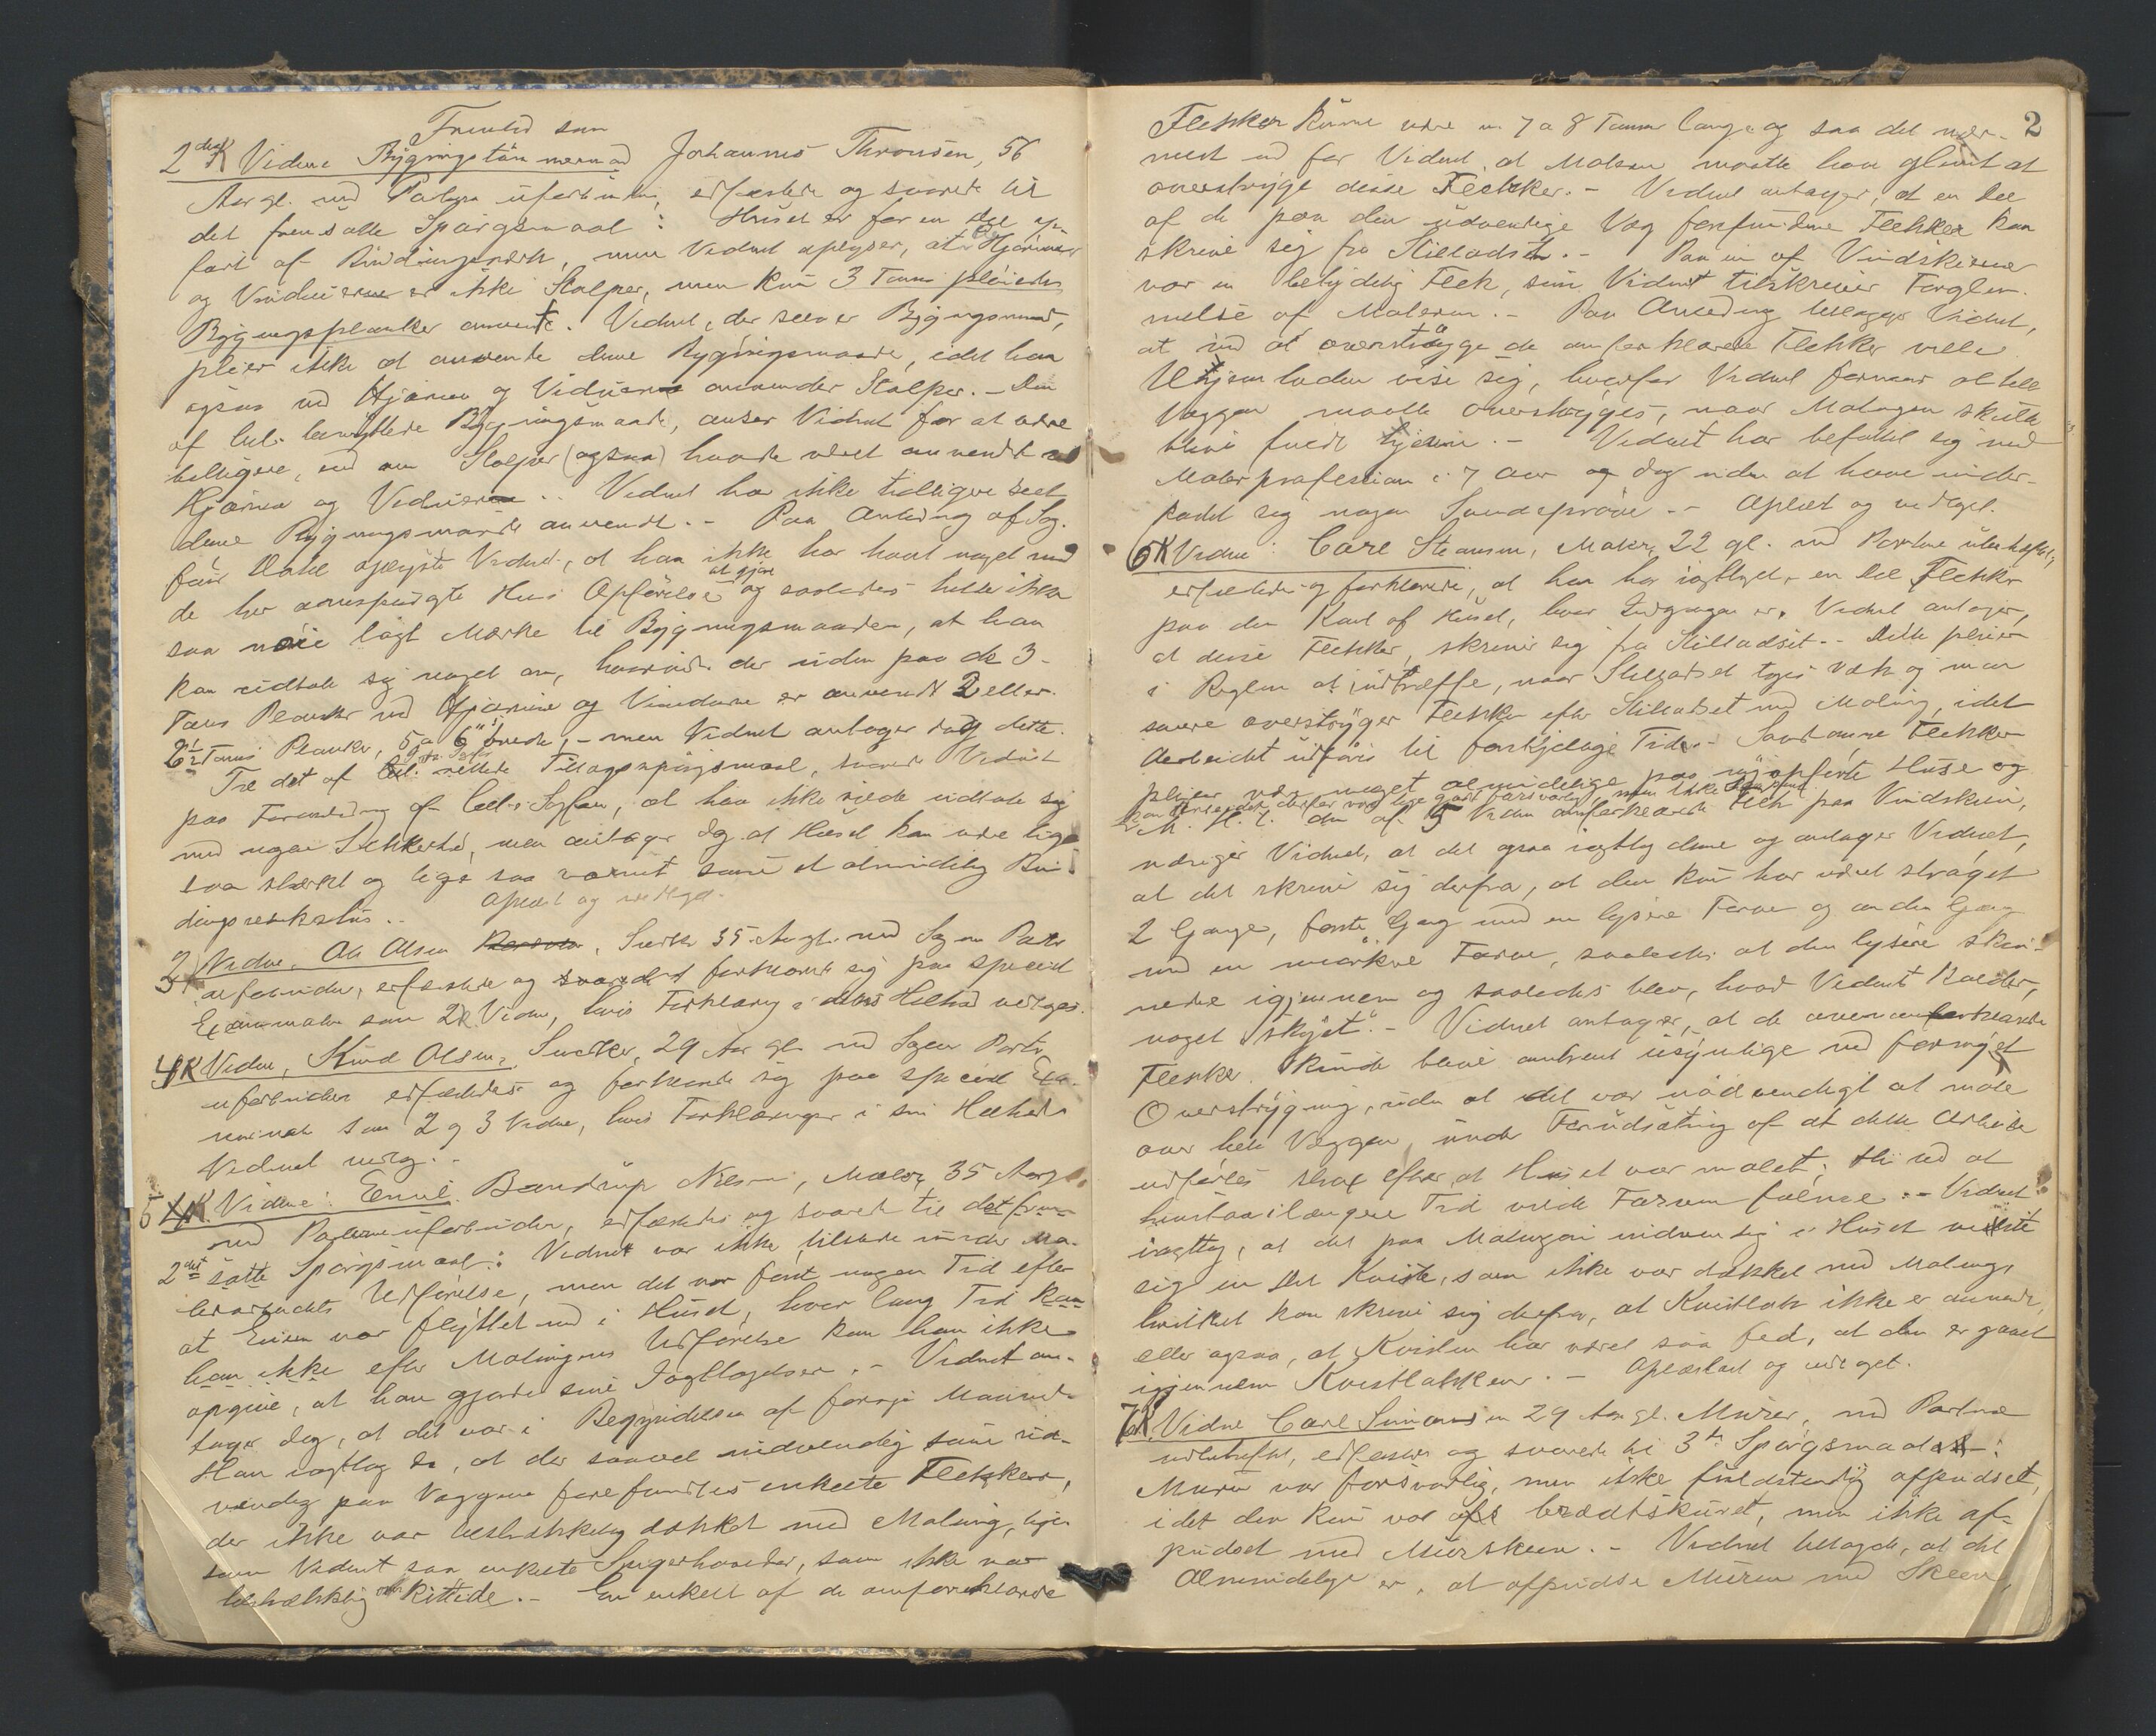 Fremlod som
2det K Vidne Bygningstømmermand Johannes Thronsen, 56
Aar gl. med Parterne uforbunden, edfæstedes og svarede til
det fremsatte Spørgsmaal: Huset er for en Del op-
ført af Bindingsværk, men Vidnet oplyser, at Hjørner
og Vinduerne er ikke Stolper, men kun 3 Toms pløiede
Bygningsplanker anvendt. Vidnet, der selv er Bygningsmand,
pleier ikke at anvende denne Bygningsmaade, idet han
ogsaa ved Hjørner og Vinduerne anvender Stolper. - Den
af benyttede Bygningsmaade, anser Vidnet for at være
billigere, end om Stolper (ogsaa) havde været anvendt ved
Hjørner og Vinduerne. Vidnet har ikke tidligere seet
denne Bygningsmaade anvendt. - Paa Anledning af Sag-
fører Dahl oplyste Vidnet, at han ikke har havt noget med
de her omspurgte Huses Opførelse at gjøre og saaledes heller ikke
saa nøie lagt Mærke til Bygningsmaaden, at han
kan udtale sig noget om, hvorvidt der uden paa de 3-
Toms Planker ved Hjørnene og Vinduerne er anvendt 2 eller
2½ Toms Planker, 5 a 6" brede, - men Vidnet antager dog dette.
Til det af rettede Tillægsspørgsmaal, svarede Vidnet
paa Foranledning af Sagfører, at han ikke vilde udtale sig
med nogen Sikkerhed, men antager dog at Huset kan være lige
saa stærkt og lige saa varmt som et almindelig Bin-
dingsverkshus. Oplæst og vedtaget.
3 K Vidne, Ole Olsen, Snedker 35 Aar gl. med Sagens Parter
uforbunden, edfæstedes og forklarede sig paa speciel
Examination som 2 K Vidne, hvis Forklaring i dens Helhed vedtages.
4 K Vidne, Knud Olsen, Snedker, 29 Aar gl. med Sagens Parter
uforbunden edfæstedes og forklarede sig paa speciel Exa-
mination som 2 og 3 Vidne, hvis Forklaringer i sin Helhed
Vidnet vedtog.
5 K Vidne: Emil Bendrup Nilsen, Maler, 35 Aar gl.
med Parterne uforbunden, edfæstedes og svarede til det frem-
2det satte Spørgsmaal: Vidnet var ikke tilstede under Ma-
lerarbeidets Udførelse, men det var først nogen Tid efter
at Eieren var flyttet ind i Huset, hvor lang Tid kan
han ikke efter Malingens Udførelse kan han ikke
opgive, at han gjorde sine Iagttagelser. - Vidnet an-
tager dog, at det var i Begyndelsen af forrige Maaned.
Han iagttog da, at der saavel indvendig som ud-
vendig paa Væggene forefandtes enkelte Flekker,
der ikke var tilstrækkelig dækket med Maling, lige-
som Vidnet saa enkelte Spigerhoveder, som ikke var
tilstrækkelig kittede. - En enkelt af de omforklarede
2
Flekker kunne være en 7 a 8 Tommer lange og saa det nær-
mest ud for Vidnet, at Maleren maatte have glemt at
overstryge disse Flekker. - Vidnet antager, at en Del
af de paa den udvendige Væg forefundne Flekker kan
skrive sig fra Stilladset. - Paa en af Vindskierne
var en betydelig Flek, som Vidnet tilskriver Forglem-
melse af Maleren. - Paa Anledning tillægger Vidnet,
at ved at overstryge de omforklarede Flekker vilde
Ujevnheden vise sig, hvorfor Vidnet formener at hele
Væggen maatte overstryges, naar Malingen skulde
blive fuldt jevn. - Vidnet har befattet sig med
Malerprofession i 7 Aar og dog uden at have under-
kastet sig nogen Svendeprøve. - Oplæst og vedtaget.
6 K Vidne: Carl Steansen, Maler, 22 gl. med Parterne ubeheftet,
edfæstedes og forklarede, at han har iagttaget en Del Flekker
paa den Kant af Huset, hvor Indgangen er. Vidnet antager,
at disse Flekker, skriver sig fra Stilladset. - Dette pleier
i Reglen at indtræffe, naar Stilladset tages væk og man
senere overstryger Flekken efter Stilladset med Maling, idet
Arbeidet udføres til forskjellige Tider. Saadanne Flekker
pleier være meget almindelige paa nyopførte Huse og
kan Arbeidet derfor være lige godt forsvarlig, men ikke
M. H. t. den af 5 Vidne omforklarede Flek paa Vindskien,
nævner Vidnet, at det ogsaa iagttog denne og antager Vidnet,
at det skriver sig derfra, at den kun har været strøget
2 Gange, første Gang med en lysere Farve og anden Gang
med en mørkere Farve, saaledes at den lysere skin-
nede igjennem og saaledes blev, hvad Vidnet kalder,
noget "skyet". - Vidnet antager, at de ovenomforklarede
Flekker kunde blive omtrent usynlige ved fornyet
Overstrygning, uden at det var nødvendigt at male
over hele Væggen, under Forudsætning af at dette Arbeide
udførtes strax efter at Huset var malet; thi ved at
henstaa i længere Tid vilde Farven falme. - Vidnet
iagttog, at det paa Malingen indvendig i Huset viste
sig en Del Kviste, som ikke var dækket med Maling,
hvilket kan skrive sig derfra, at Kvistlak ikke er anvendt,
eller ogsaa, at Kvisten har været saa fed, at den er gaaet
igjennem Kvistlakken. - Oplæstes og vedtaget.
7 K Vidne Carl Simonsen 29 Aar gl. Murer, med Parterne
ubeheftet, edfæstes og svarede til 3die Spørgsmaal:
Muren var forsvarlig, men ikke fuldstændig afpudset,
idet den kun var brædtskuret, men ikke af-
pudset med Murskeen. - Vidnet tilføgde, at det
Almindelige er, at afpudse Muren med Skeen,